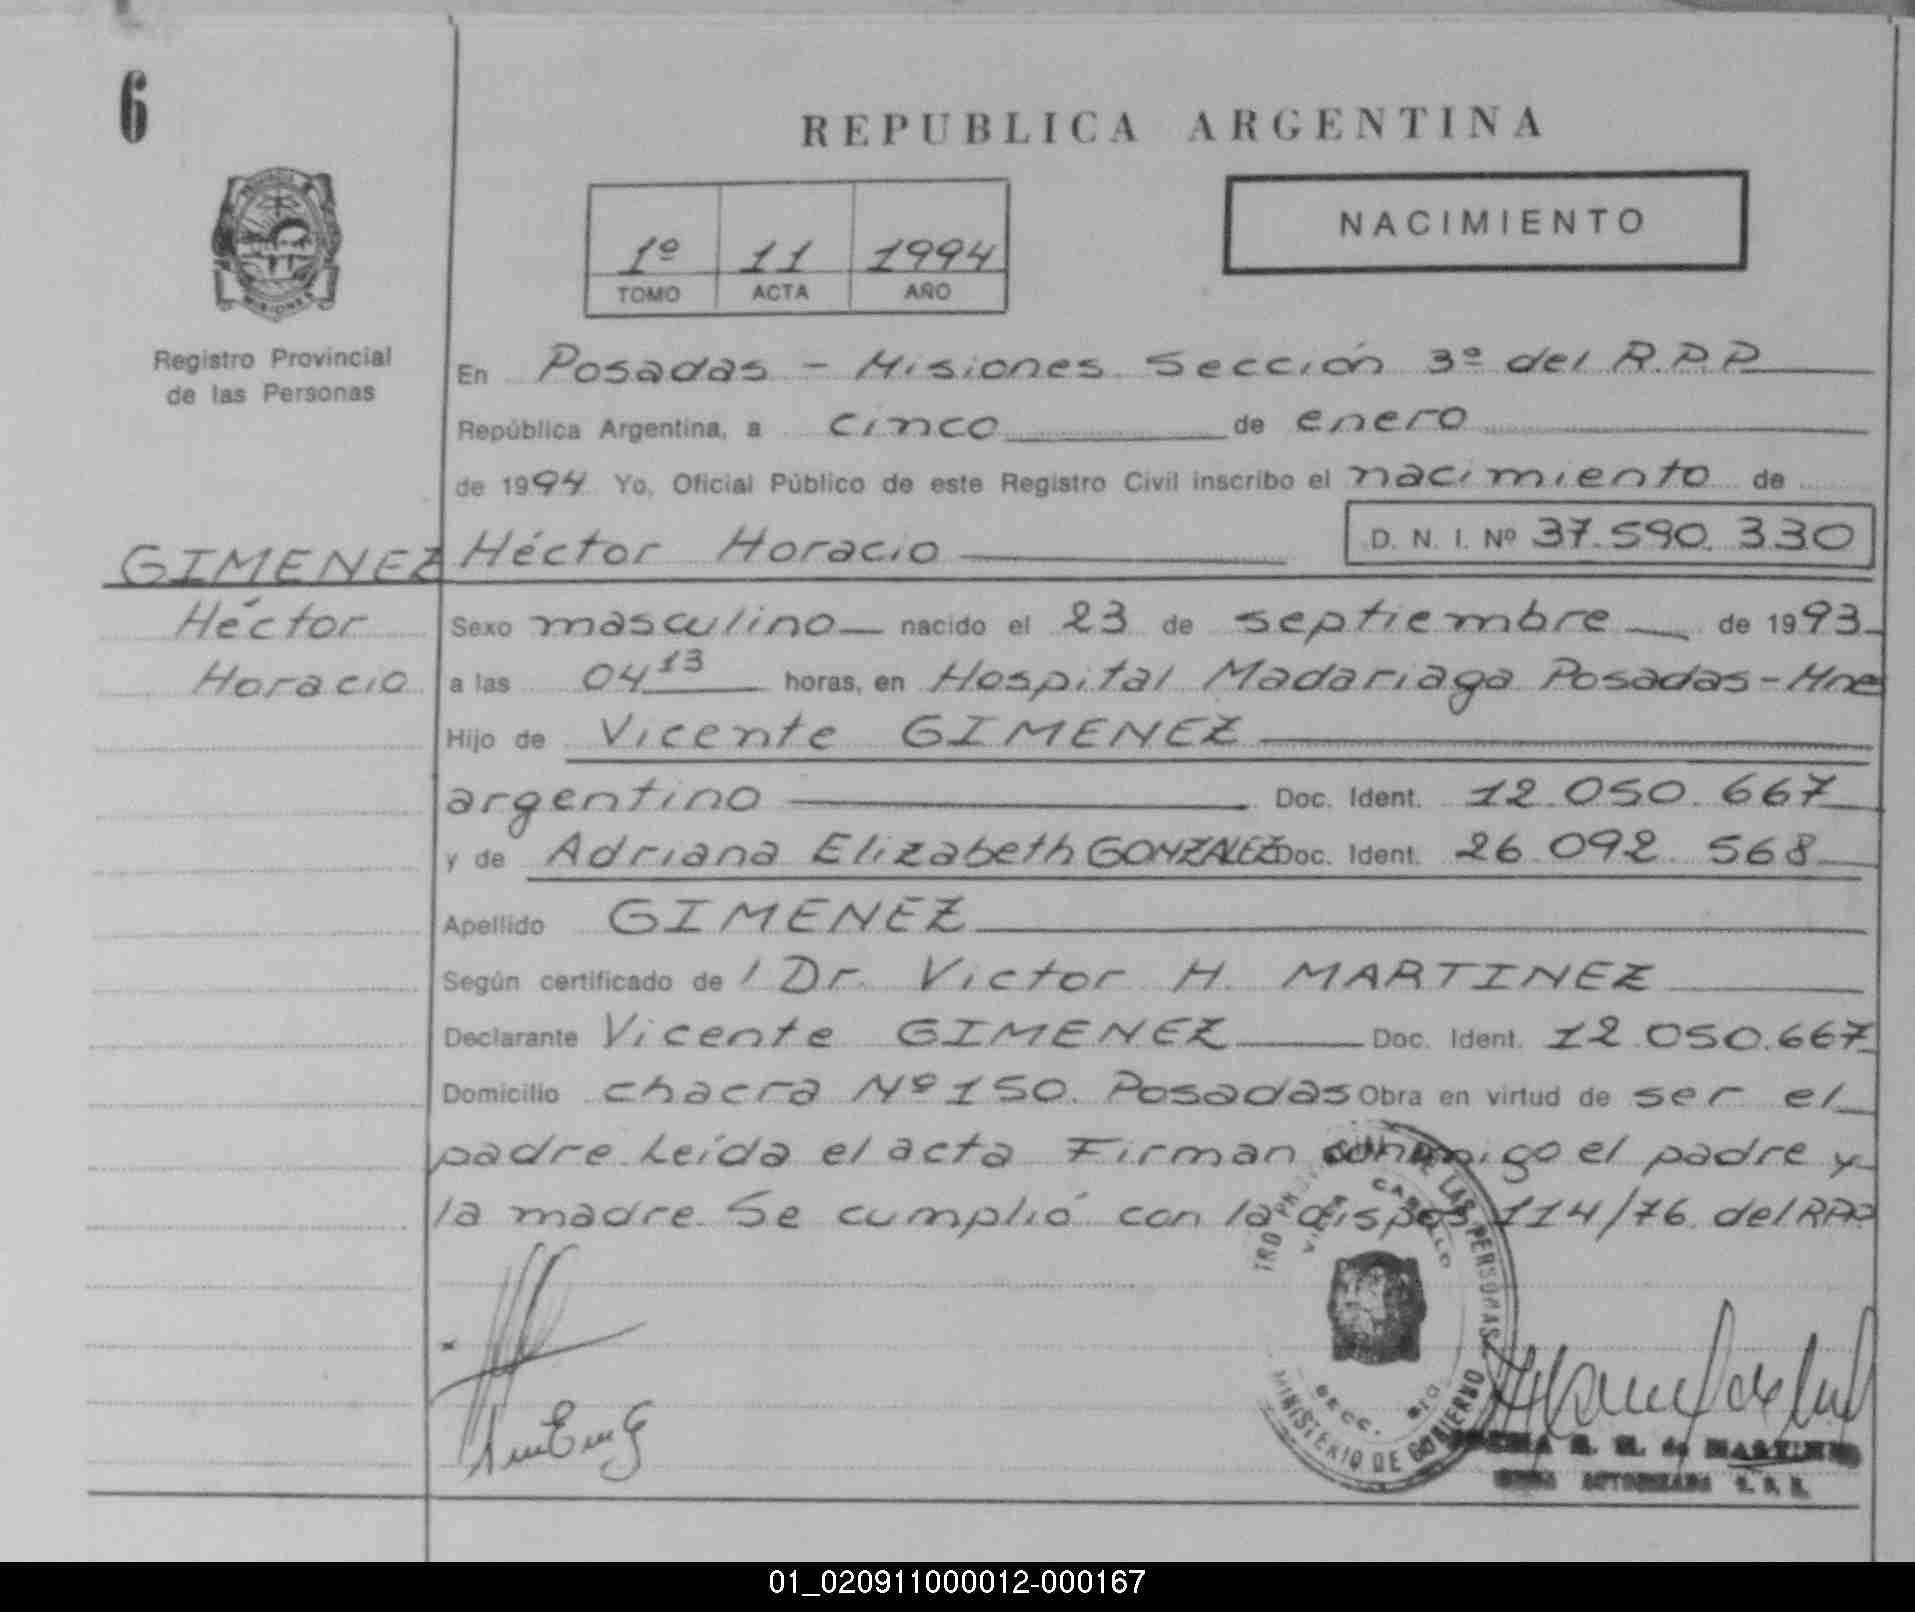 6
REPUBLICA ARGENTINA
NACIMIENTO
1º 11 1994
TOMO ACTA AÑO
MISIONES
Registro Provincial
de las Personas
En Posadas - Misiones Sección 3º del R.P.P
República Argentina, a cinco de enero
de 1994 Yo, Oficial Público de este Registro Civil inscribo el nacimiento de
GIMENEZ Héctor Horacio D. N. I. Nº 37.590.330
Héctor
Horacio
Sexo masculino nacido el 23 de septiembre de 1993
a las 04 13 horas, en Hospital Madariaga Posadas-Mnes
Hijo de Vicente GIMENEZ
argentino Doc. Ident. 12.050.667
y de Adriana Elizabeth GONZALEZ Doc. Ident. 26.092.568
Apellido GIMENEZ
Según certificado de / Dr. Victor H. MARTINEZ
Declarante Vicente GIMENEZ Doc. Ident. 12.050.667
Domicilio chacra Nº 150. Posadas Obra en virtud de ser el
padre Leída el acta Firman conmigo el padre y
la madre. Se cumplió con la dispos. 114/76 del RPP
LAS PERSONAS
MINISTERIO DE GOBIERNO
SECC.
de MARTINEZ
01_020911000012-000167